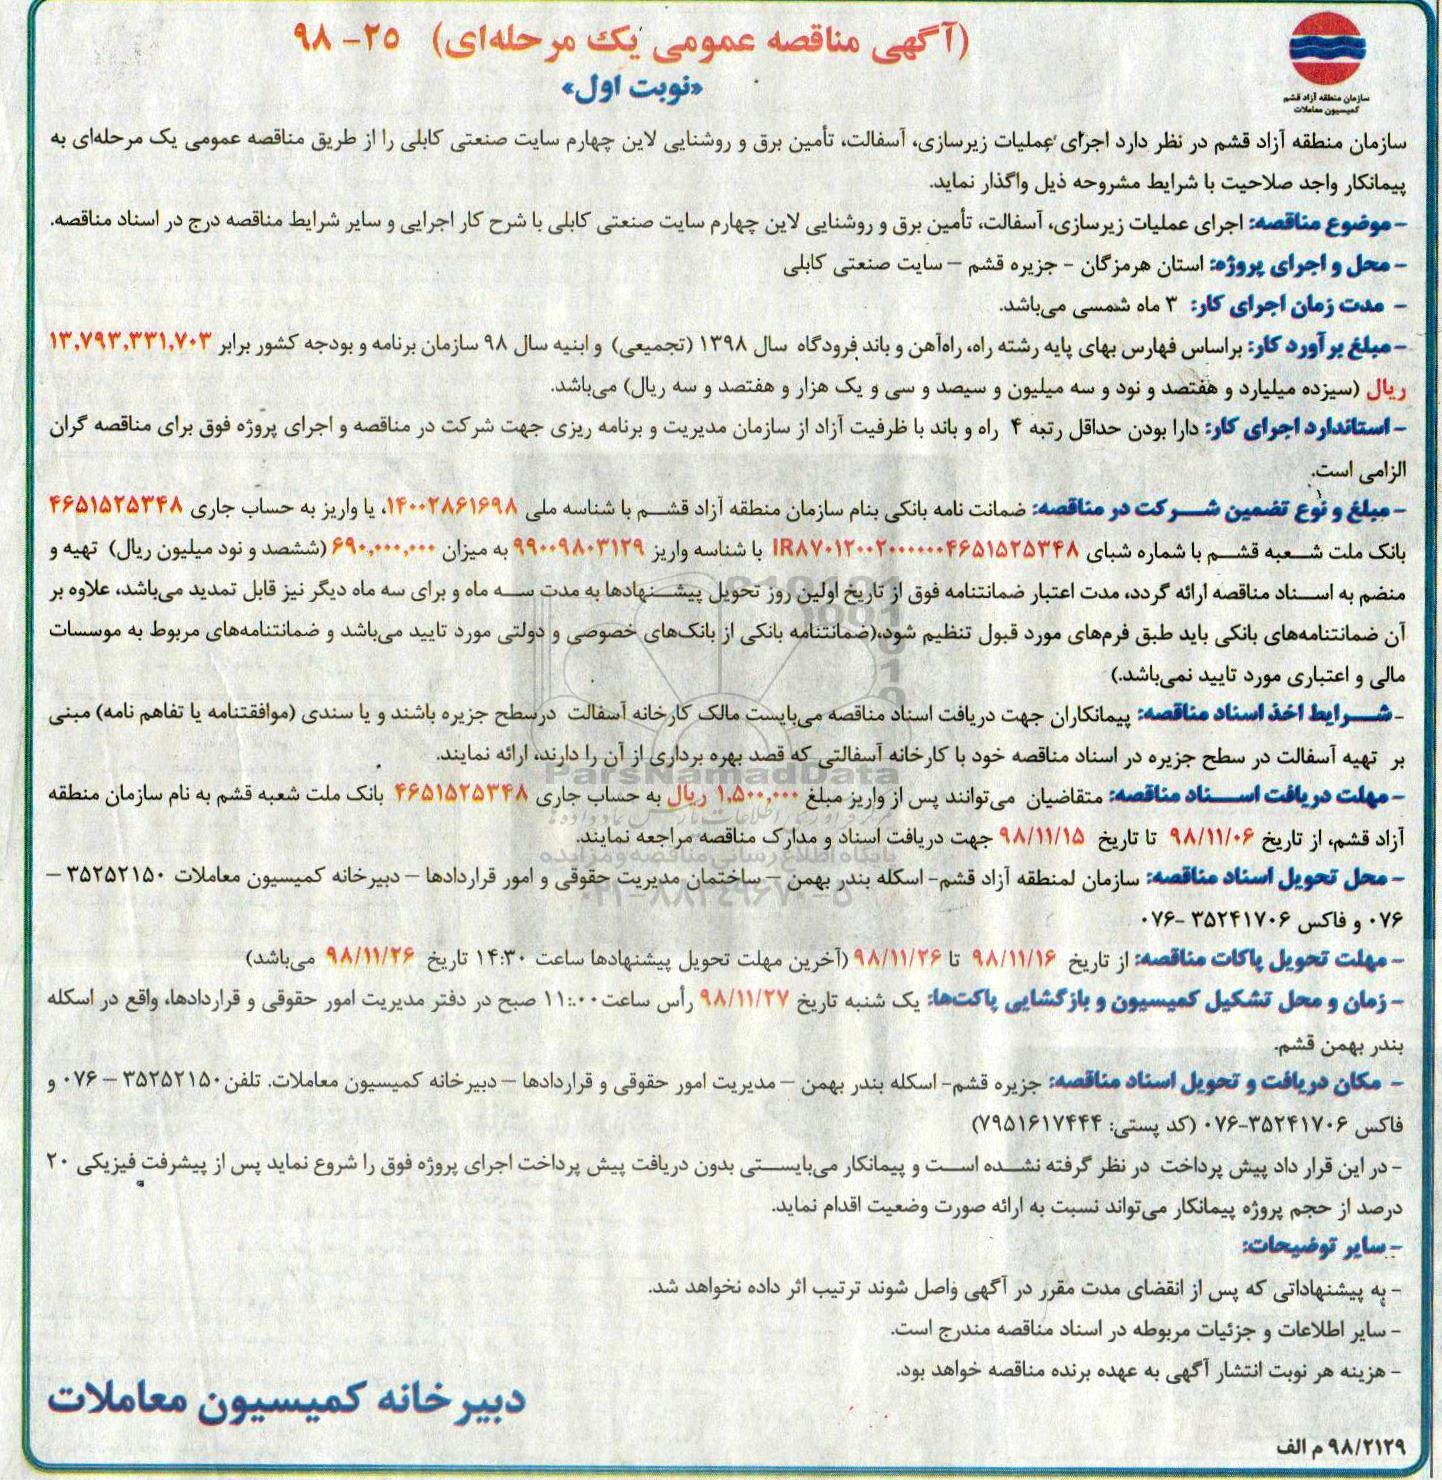 (آگهی مناقصه عمومی یک مرحله‌ای) ۲۵- ۹۸
«نوبت اول»
سازمان منطقه آزاد قشم
کمیسیون معاملات
سازمان منطقه آزاد قشم در نظر دارد اجرای عملیات زیرسازی، آسفالت، تأمین برق و روشنایی لاین چهارم سایت صنعتی کابلی را از طریق مناقصه عمومی یک مرحله‌ای به
پیمانکار واجد صلاحیت با شرایط مشروحه ذیل واگذار نماید.
- موضوع مناقصه: اجرای عملیات زیرسازی، آسفالت، تأمین برق و روشنایی لاین چهارم سایت صنعتی کابلی با شرح کار اجرایی و سایر شرایط مناقصه درج در اسناد مناقصه.
- محل و اجرای پروژه: استان هرمزگان - جزیره قشم – سایت صنعتی کابلی
- مدت زمان اجرای کار: ۳ ماه شمسی می‌باشد.
- مبلغ برآورد کار: براساس فهارس بهای پایه رشته راه، راه‌آهن و باند فرودگاه سال ۱۳۹۸ (تجمیعی) و ابنیه سال ۹۸ سازمان برنامه و بودجه کشور برابر ۱۳,۷۹۳,۳۳۱,۷۰۳
ریال (سیزده میلیارد و هفتصد و نود و سه میلیون و سیصد و سی و یک هزار و هفتصد و سه ریال) می‌باشد.
- استاندارد اجرای کار: دارا بودن حداقل رتبه ۴ راه و باند با ظرفیت آزاد از سازمان مدیریت و برنامه ریزی جهت شرکت در مناقصه و اجرای پروژه فوق برای مناقصه گران
الزامی است.
- مبلغ و نوع تضمین شرکت در مناقصه: ضمانت نامه بانکی بنام سازمان منطقه آزاد قشم با شناسه ملی ۱۴۰۰۲۸۶۱۶۹۸، یا واریز به حساب جاری ۴۶۵۱۵۲۵۳۴۸
بانک ملت شعبه قشم با شماره شبای IR۸۷۰۱۲۰۰۲۰۰۰۰۰۰۴۶۵۱۵۲۵۳۴۸ با شناسه واریز ۹۹۰۰۹۸۰۳۱۲۹ به میزان ۶۹۰,۰۰۰,۰۰۰ (ششصد و نود میلیون ریال) تهیه و
منضم به اسناد مناقصه ارائه گردد، مدت اعتبار ضمانتنامه فوق از تاریخ اولین روز تحویل پیشنهادها به مدت سه ماه و برای سه ماه دیگر نیز قابل تمدید می‌باشد، علاوه بر
آن ضمانتنامه‌های بانکی باید طبق فرم‌های مورد قبول تنظیم شود،(ضمانتنامه بانکی از بانک‌های خصوصی و دولتی مورد تایید می‌باشد و ضمانتنامه‌های مربوط به موسسات
مالی و اعتباری مورد تایید نمی‌باشد.)
- شرایط اخذ اسناد مناقصه: پیمانکاران جهت دریافت اسناد مناقصه می‌بایست مالک کارخانه آسفالت درسطح جزیره باشند و یا سندی (موافقتنامه یا تفاهم نامه) مبنی
بر تهیه آسفالت در سطح جزیره در اسناد مناقصه خود با کارخانه آسفالتی که قصد بهره برداری از آن را دارند، ارائه نمایند.
ParsNamadData
- مهلت دریافت اسناد مناقصه: متقاضیان می‌توانند پس از واریز مبلغ ۱,۵۰۰,۰۰۰ ریال به حساب جاری ۴۶۵۱۵۲۵۳۴۸ بانک ملت شعبه قشم به نام سازمان منطقه
آزاد قشم، از تاریخ ۹۸/۱۱/۰۶ تا تاریخ ۹۸/۱۱/۱۵ جهت دریافت اسناد و مدارک مناقصه مراجعه نمایند.
پایگاه اطلاع رسانی مناقصه و مزایده
- محل تحویل اسناد مناقصه: سازمان لمنطقه آزاد قشم- اسکله بندر بهمن – ساختمان مدیریت حقوقی و امور قراردادها – دبیرخانه کمیسیون معاملات ۳۵۲۵۲۱۵۰ –
۰۲۱-۸۸۳۴۹۶۷۰-۵
۰۷۶ و فاکس ۳۵۲۴۱۷۰۶ -۰۷۶
- مهلت تحویل پاکات مناقصه: از تاریخ ۹۸/۱۱/۱۶ تا ۹۸/۱۱/۲۶ (آخرین مهلت تحویل پیشنهادها ساعت ۱۴:۳۰ تاریخ ۹۸/۱۱/۲۶ می‌باشد)
- زمان و محل تشکیل کمیسیون و بازگشایی پاکت‌ها: یک شنبه تاریخ ۹۸/۱۱/۲۷ رأس ساعت۱۱:۰۰ صبح در دفتر مدیریت امور حقوقی و قراردادها، واقع در اسکله
بندر بهمن قشم.
- مکان دریافت و تحویل اسناد مناقصه: جزیره قشم- اسکله بندر بهمن – مدیریت امور حقوقی و قراردادها – دبیرخانه کمیسیون معاملات. تلفن۳۵۲۵۲۱۵۰ – ۰۷۶ و
فاکس ۳۵۲۴۱۷۰۶-۰۷۶ (کد پستی: ۷۹۵۱۶۱۷۴۴۴)
- در این قرار داد پیش پرداخت در نظر گرفته نشده است و پیمانکار می‌بایستی بدون دریافت پیش پرداخت اجرای پروژه فوق را شروع نماید پس از پیشرفت فیزیکی ۲۰
درصد از حجم پروژه پیمانکار می‌تواند نسبت به ارائه صورت وضعیت اقدام نماید.
- سایر توضیحات:
- به پیشنهاداتی که پس از انقضای مدت مقرر در آگهی واصل شوند ترتیب اثر داده نخواهد شد.
- سایر اطلاعات و جزئیات مربوطه در اسناد مناقصه مندرج است.
- هزینه هر نوبت انتشار آگهی به عهده برنده مناقصه خواهد بود.
دبیرخانه کمیسیون معاملات
۹۸/۲۱۲۹ م الف